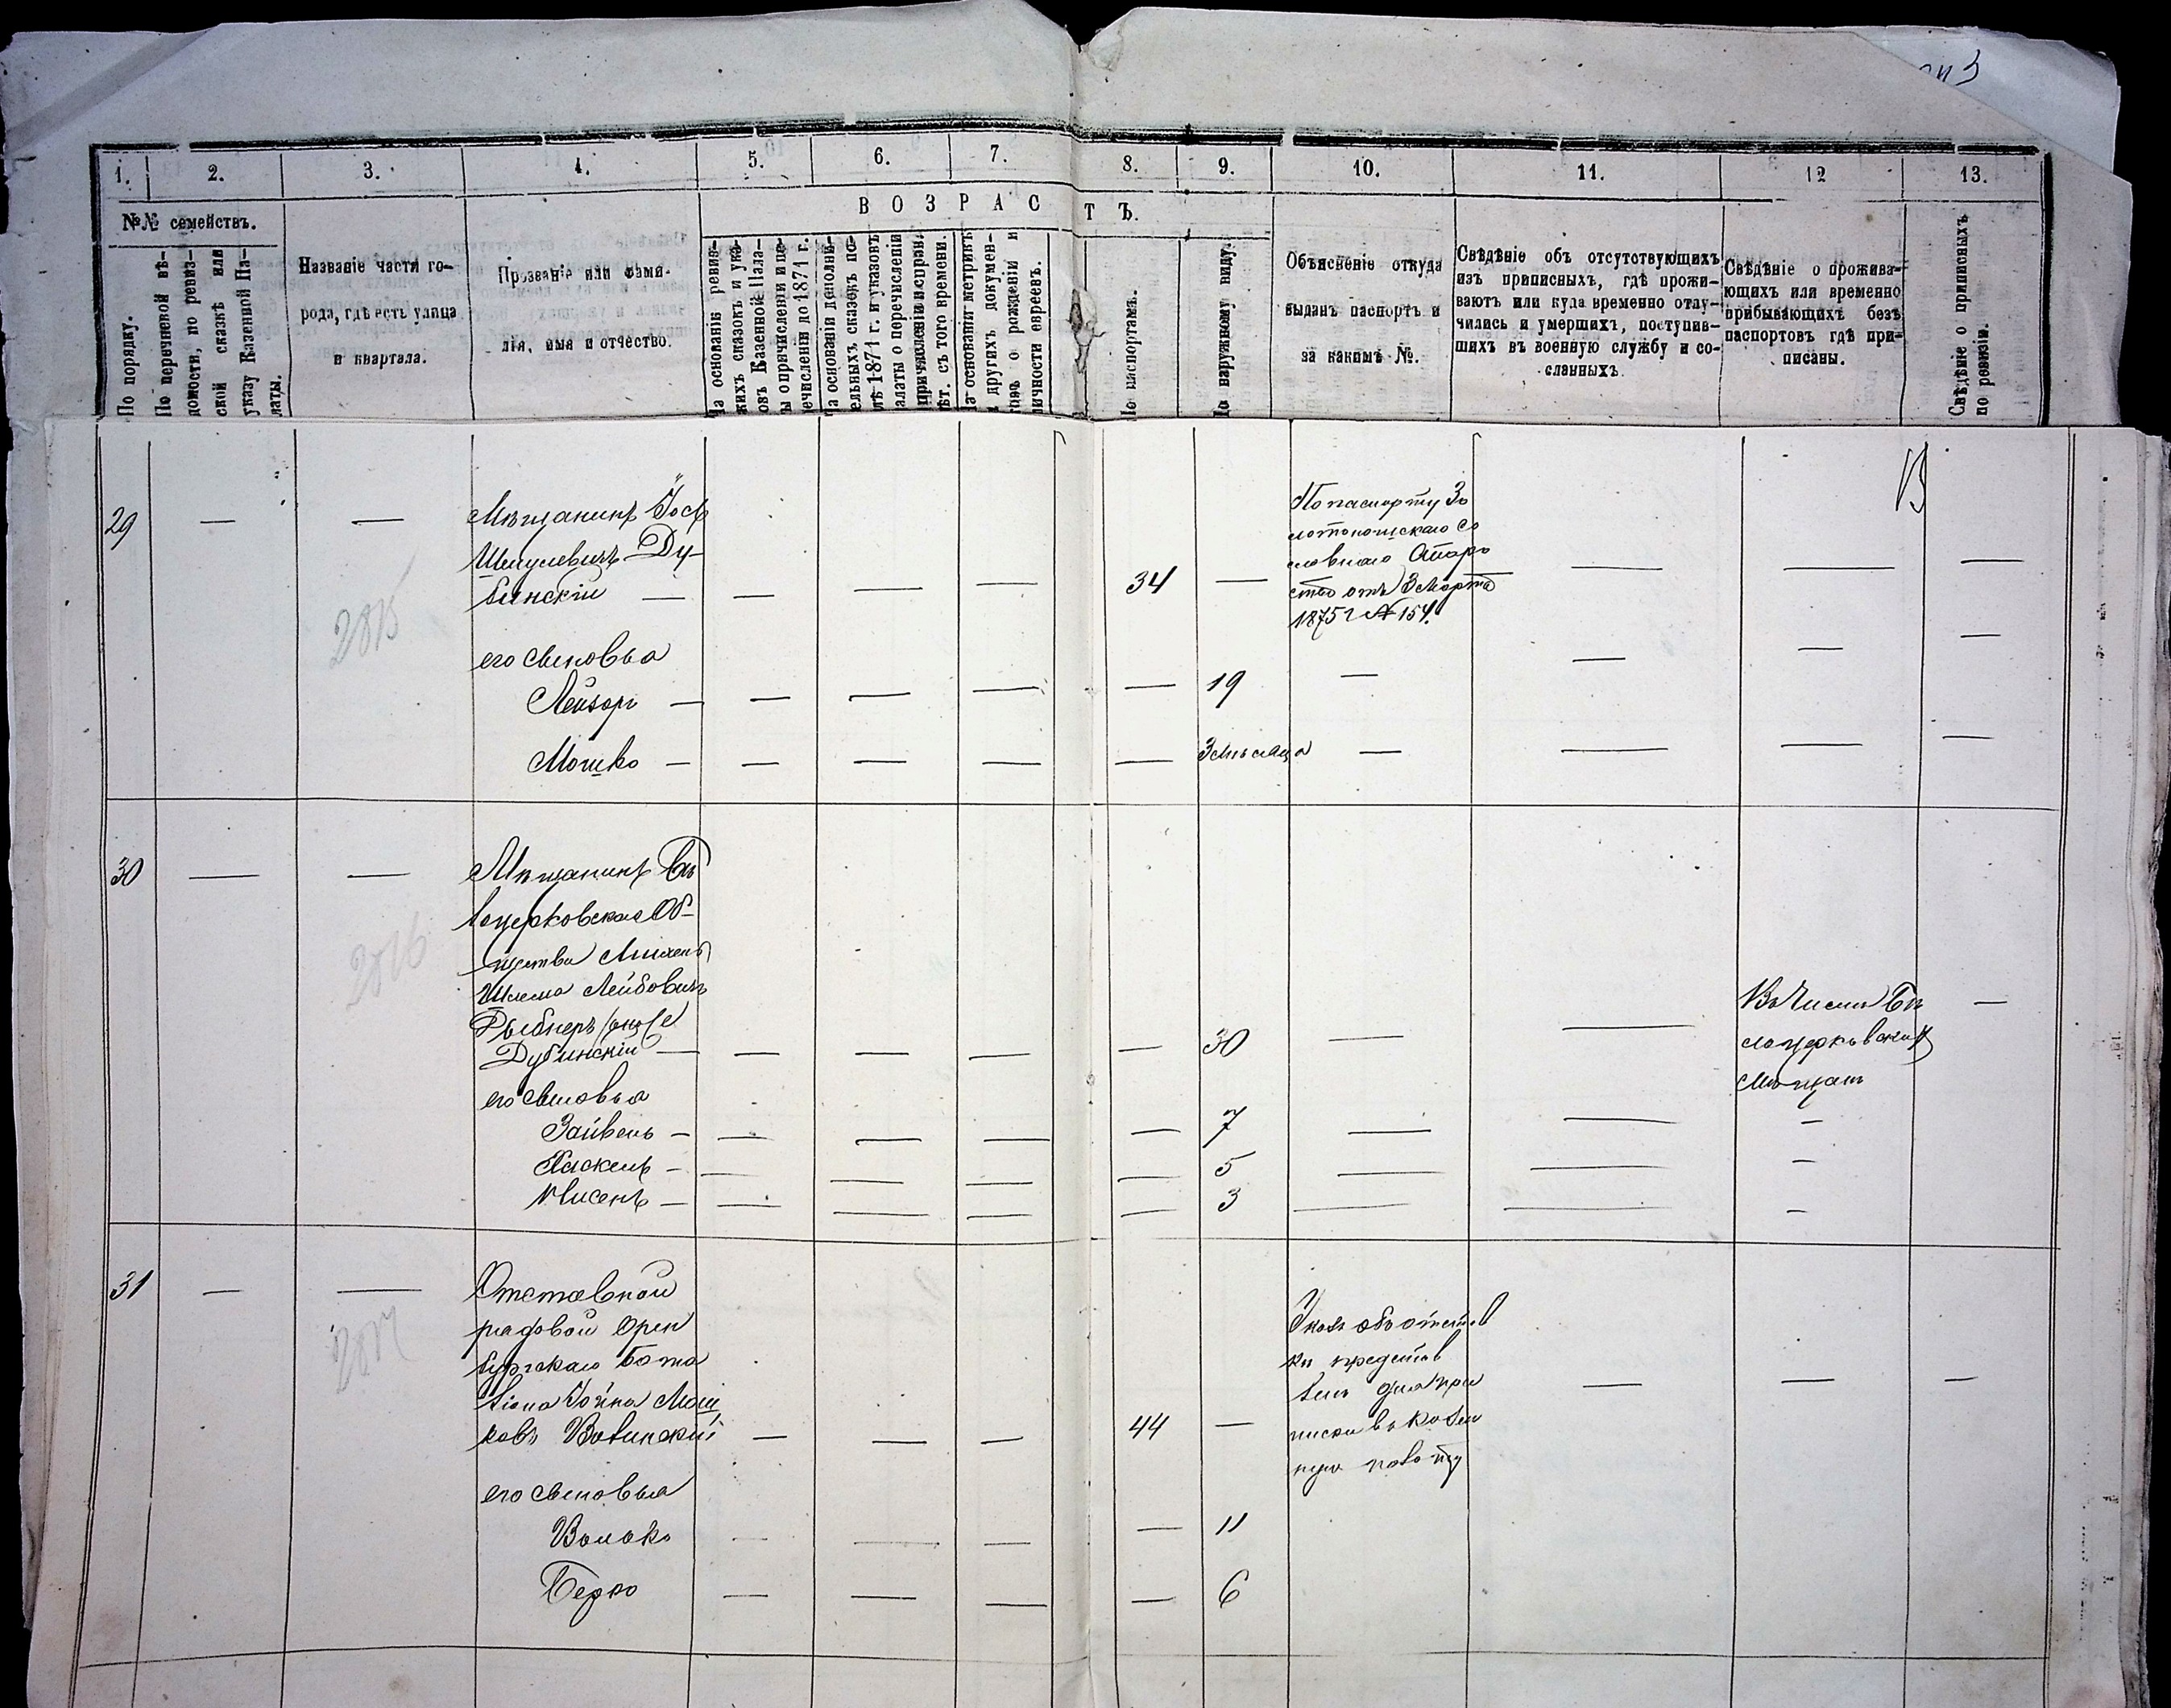 1. 2. 3. 4. 5. 6. 7. 8. 9. 10. 11. 12 13.
№№ семействъ.
По порядку.
По перечневой вѣ-
домости, по ревиз-
ской сказкѣ или
указу Казенной Па-
латы.
Названіе части го-
рода, гдѣ есть улица
и квартала.
Прозваніе или фами-
лія, имя и отчество.
ВОЗРАСТЪ.
На основаніи ревиз-
скихъ сказокъ и ука-
зовъ Казенной Пала-
ты о причисленіи и пе-
речисленіи до 1871 г.
На основаніи дополни-
тельныхъ сказокъ по-
слѣ 1871 г. и указовъ
Палаты о перечисленіи
причисленіи и исправ.
лѣт. съ того времени.
На основаніи метрикъ
и другихъ докумен-
товъ о рожденіи и
личности евреевъ.
По паспортамъ.
По наружному виду.
Объясненіе откуда
выданъ паспортъ и
за какимъ №.
Свѣдѣніе объ отсутствующихъ
изъ приписныхъ, гдѣ прожи-
ваютъ или куда временно отлу-
чились и умершихъ, поступив-
шихъ въ военную службу и со-
сланныхъ.
Свѣдѣніе о прожива-
ющихъ или временно
прибывающихъ безъ
паспортовъ гдѣ при-
писаны.
Свѣдѣніе о приписныхъ
по ревизіи.
29 — —
2815
Мѣщанинъ Йось
Шмулевичъ Ду-
бинскій — — — — 34 — — — —
По паспорту Зо
лотоношскаго Со
словнаго Старо
ства отъ 3 Марта
1875 г № 154.
его сыновья
Лейзоръ — — — — — 19 — — — —
Мошко — — — — — 3 мѣсяца — — — —
30 — —
2816
Мѣщанинъ Бѣ
лоцерковскаго Об-
щества
Шлема Лейбовичъ
Рыбнеръ онъ же
Дубинскій — — — — — 30 — —
Въ числѣ Бѣ
лоцерковскихъ
Мѣщанъ
—
его сыновья
Зайвель — — — — — 7 — — —
Хаскель — — — — — 5 — — —
— — — — — 3 — — —
31 — —
2817
Отставной
рядовой Орен
бургскаго Бата
ліона Йойна Мош
ковъ — — — 44 — — — —
Указъ объ отстав
ки представ
ленъ для при
писки въ Казен
ную палату
его сыновья
Волько — — — — 11
Берко — — — — 6